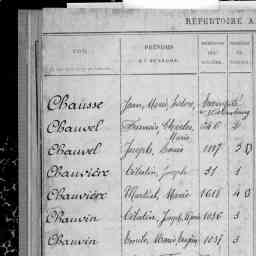 RÉPERTOIRE A
NOMS
PRÉNOMS
ET SURNOMS.
Chausse Jean, Marie, Isidore, Exempté
Chauvel Francois Charles, Marie 246 2
Chauvel Joseph, Louis 1117 3
Chauvière Célestin, Joseph 31 1
Chauvière Martial, Marie 1618 4
Chauvin Célestin, Joseph, Marie 1036 3
Chauvin Emile, Marie, Eugène 1037 3